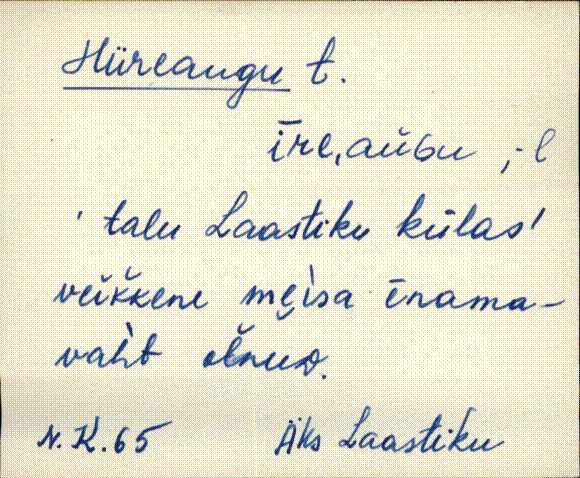 Hüreaugu t.
īre,aùgu ;-l
'talu Laastiku külas'
veikkene mẹìsa ēnama-
vaht olnud.
N.K.65 Äks Laastiku